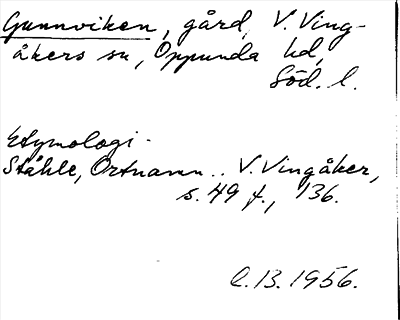 Gunnviken, gård, V. Ving-
åkers sn, Oppunda hd,
Söd. l.
Etymologi.
Ståhle, Ortnamn.. V. Vingåker,
s. 49 f., 136.
C.B. 1956.